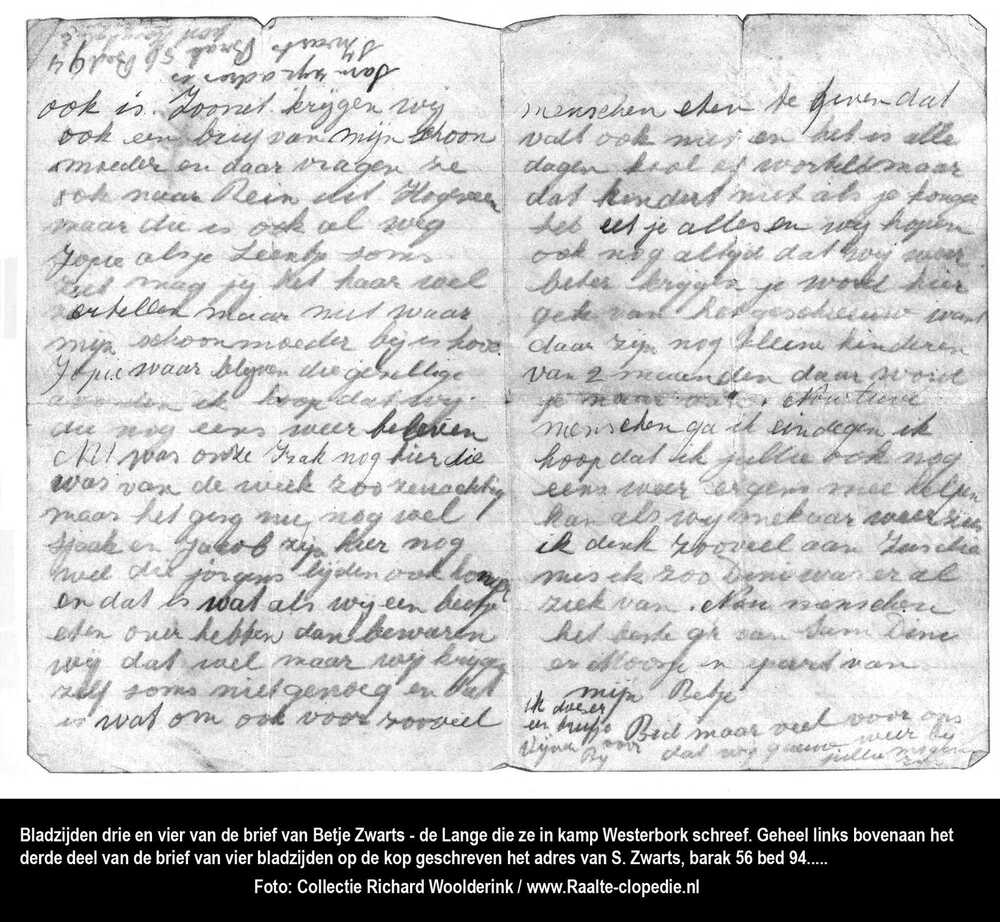 Sam zijn adres is
Zwarts Barak 56 Bed 94
ook is. Zoonet krijgen wij
ook een brief van mijn schoon
moeder en daar vragen ze
ook naar Rein uit
maar die is ook al weg
Jopie als je Leentje soms
ziet mag jij het haar wel
vertellen maar niet waar
mijn schoonmoeder bij is hoor
Jopie waar blijven die gezellige
avonden ik hoop dat wij
die nog eens weer beleven
was onze Izak nog hier die
was van de week zoo zenuachtig
maar het ging nu nog wel
Izaak en Jacob zijn hier nog
wel die jongens lijden ook honger
en dat is wat als wij een beetje
eten over hebben dan bewaren
wij dat wel maar wij krijgen
zelf soms niet genoeg en dat
is wat om ook voor zooveel
menschen eten te geven dat
valt ook niet en het is alle
dagen kool en wortels maar
dat hindert niet als je honger
heb eet je alles en wij hopen
ook nog altijd dat wij weer
beter krijgen je word hier
gek van het geschreeuw want
daar zijn nog kleine kinderen
van 2 maanden daar word
je maar. Nou lieve
menschen ga ik eindegen ik
hoop dat ik jullie ook nog
eens weer ergens mee helpen
kan als wij mekaar weer zien
ik denk zooveel aan die
mis ik zoo Dini was er al
ziek van. Nou menschen
het beste gr van Sam Dini
en en van
mijn Betje
ik doe er
een briefje
voor
bij
Bid maar veel voor ons
dat wij gauw weer bij
jullie mogen
Bladzijden drie en vier van de brief van Betje Zwarts - de Lange die ze in kamp Westerbork schreef. Geheel links bovenaan het
derde deel van de brief van vier bladzijden op de kop geschreven het adres van S. Zwarts, barak 56 bed 94.....
Foto: Collectie Richard Woolderink / www.Raalte-clopedie.nl